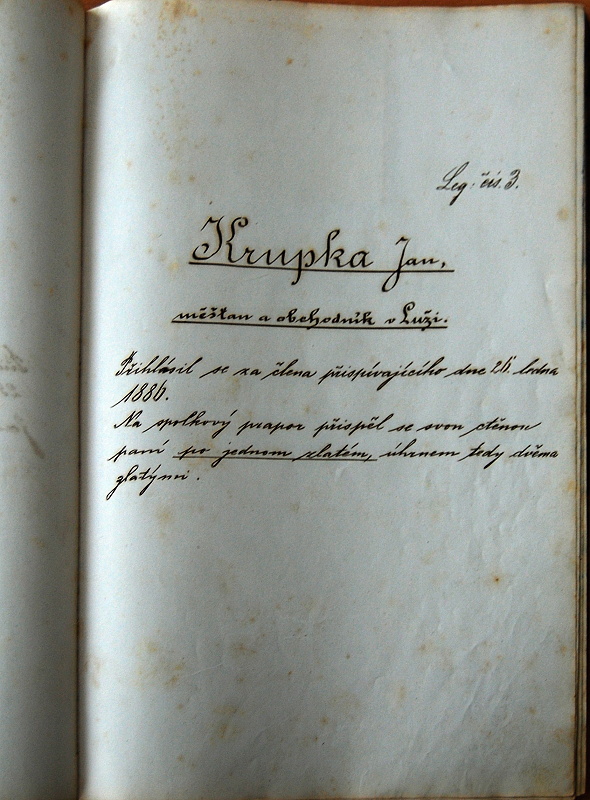 Leg: čís. 3.
Krupka Jan,
měšťan a obchodník v Luži.
Přihlásil se za člena přispívajícího dne 26. ledna
1886.
Na spolkový prapor přispěl se svou ctěnou
paní po jednom zlatém, úhrnem tedy dvěma
zlatými.